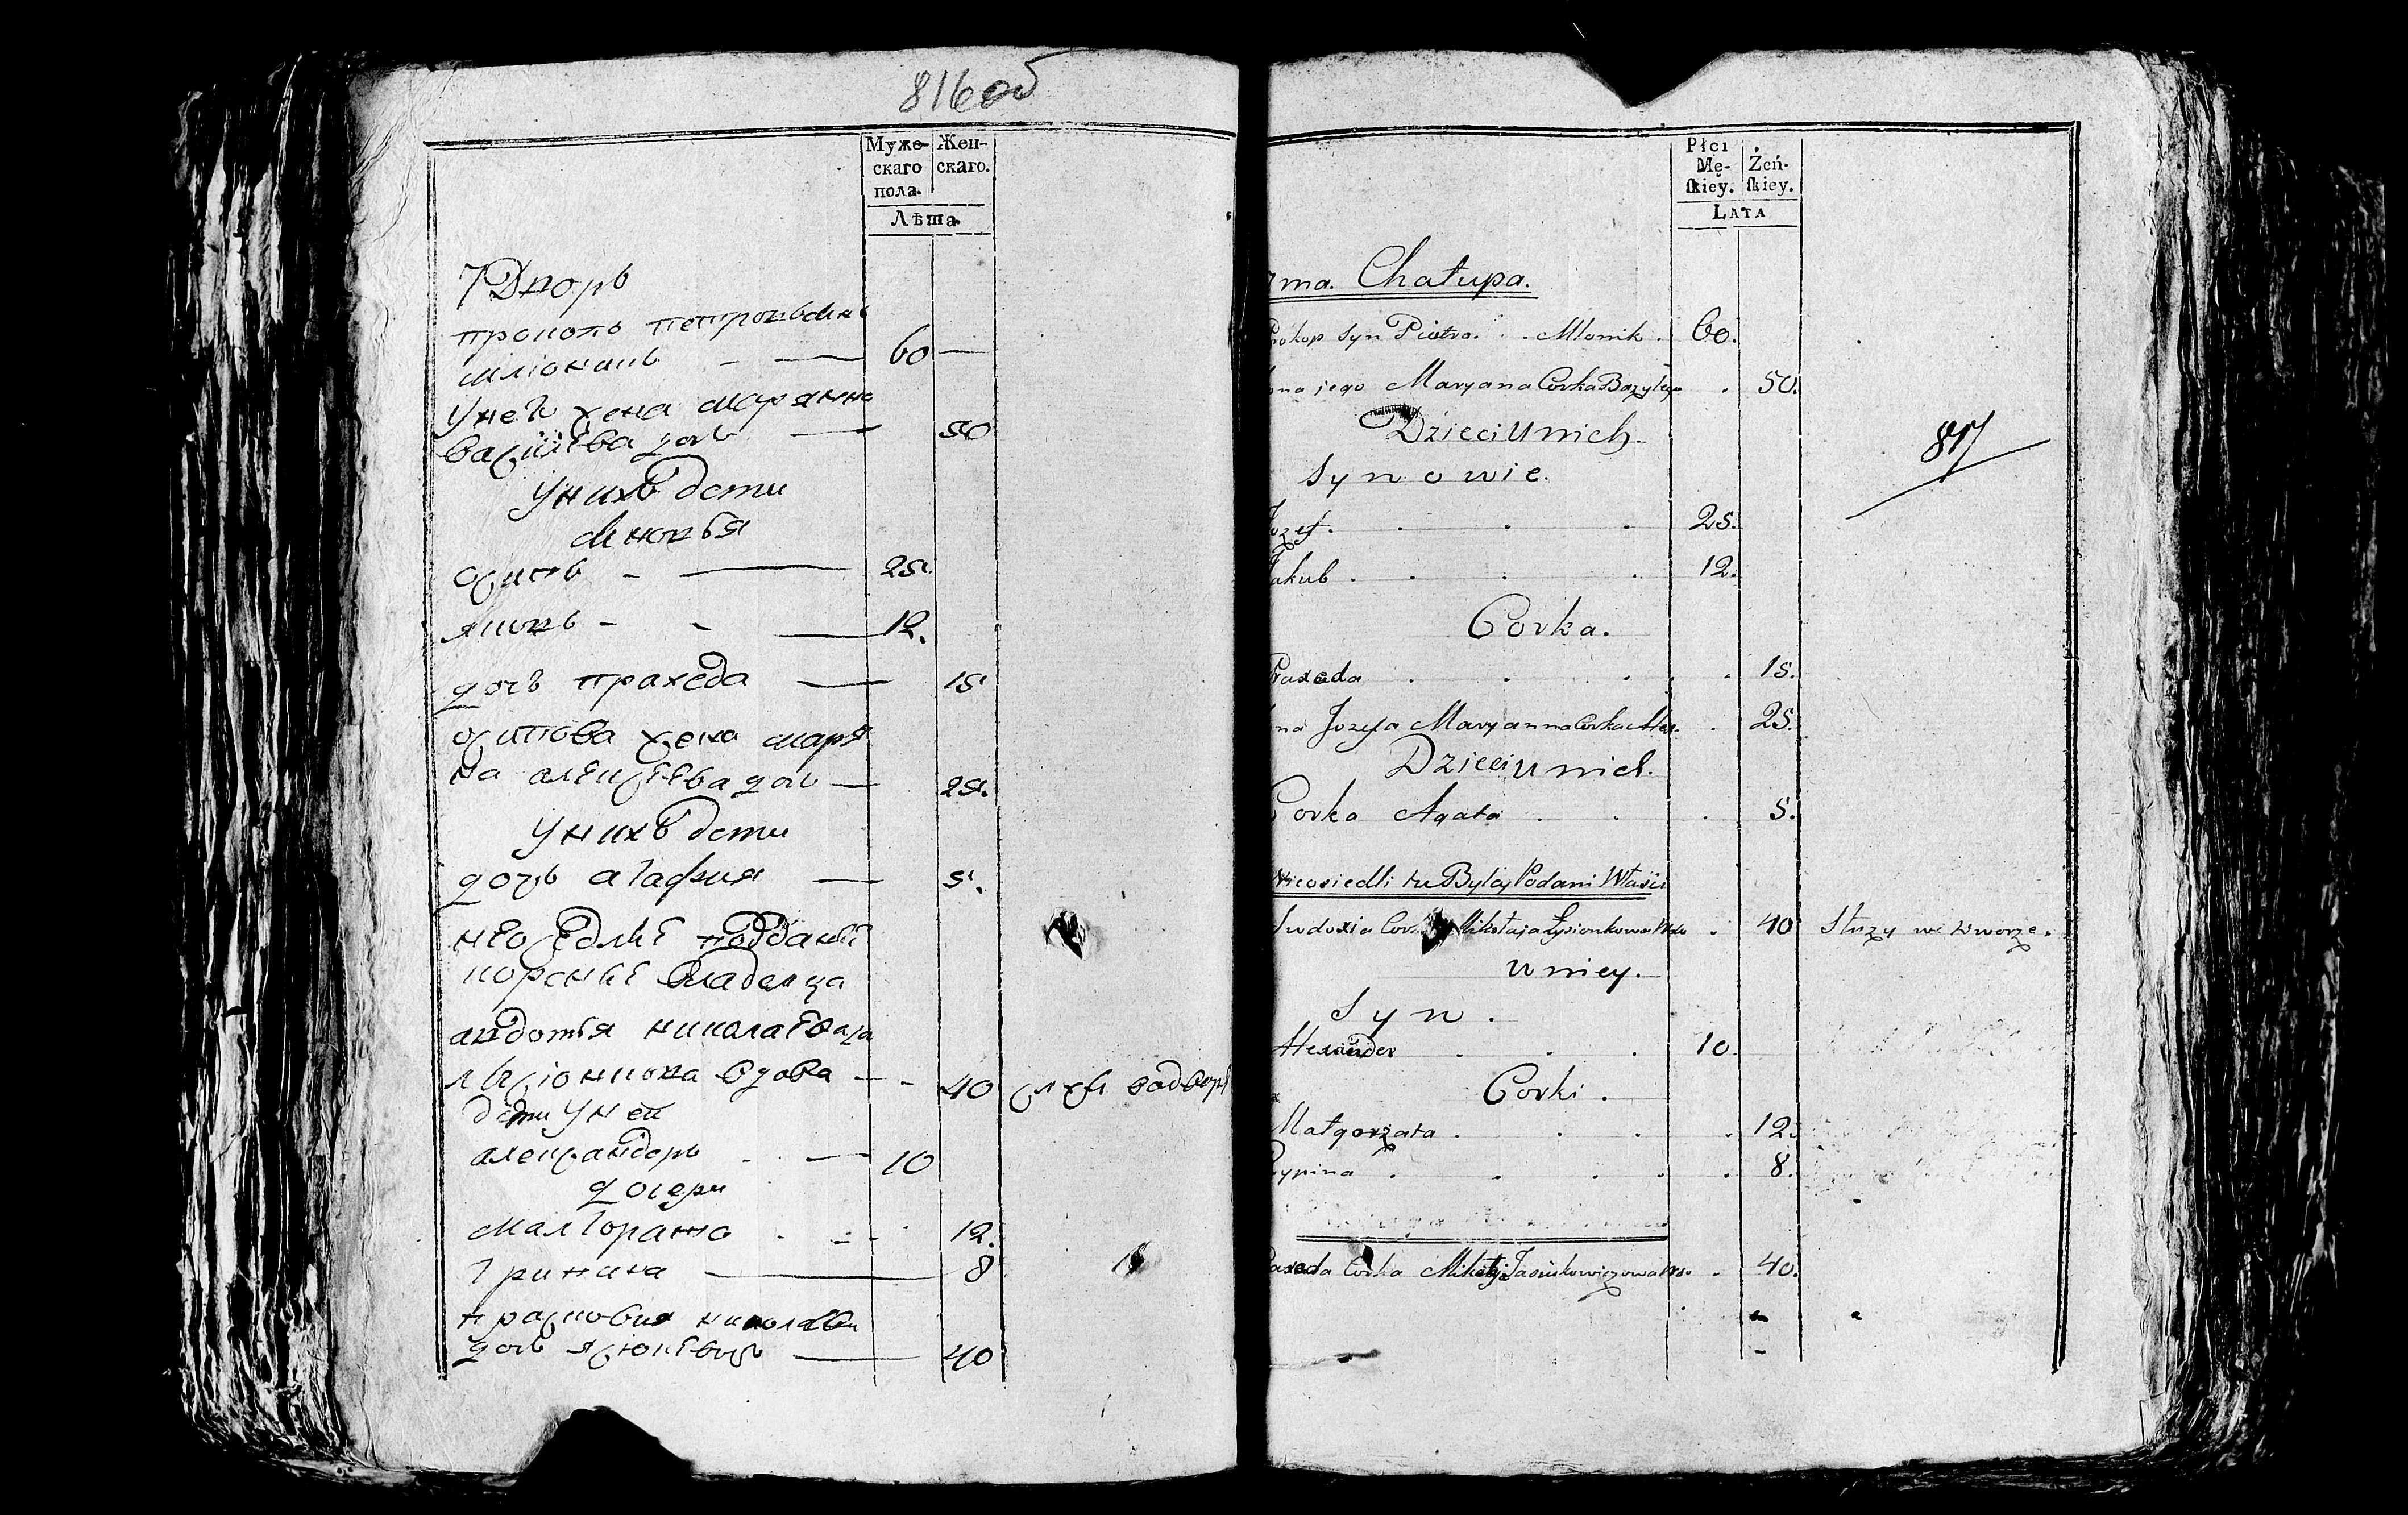 816 об
Муже-
скаго
пола.
Жен-
скаго.
Лѣта
7 Дворъ
прокопъ петровъ сынъ
млюникъ 60
У него жена марянна
василева доч 50
У нихъ дети
сыновья
осипъ 25
яковъ 12.
дочь прахеда 15
осипова жена марья
на алексеева доч 25.
У нихъ дети
дочь агафия 5.
владелца
авдотья николаева до
вдова 40
дети У ней
александоръ 10
дочери
малгората 12.
Грипина 8
прасковия николаева
доч 40
Płci
Mę-
ſkiey.
Żeń-
ſkiey.
LATA
ma. Chałupa.
Prokop syn Piotra. Mlonik. 60.
ona jego Maryana Corka Bazylego 50.
Dzieci U nich
Synowie.
817
Jozef. 25.
Jakub. 12.
Corka.
Praxeda 15.
na Jozefa Maryanna Corka Alex. 25.
Dzieci U nich.
Corka Agata 5.
Nieosiedli tu Bylcy Podani Właści
Eudoxia Cor Mikołaja Łysionkowa Wdo 40 Służy we Dworze.
U niey.
Syn.
Alexander 10.
Corki.
Małgorzata. 12.
Grypina 8.
Praxeda Corka Mikołaja Jasiukowiczowa Wdo 40.